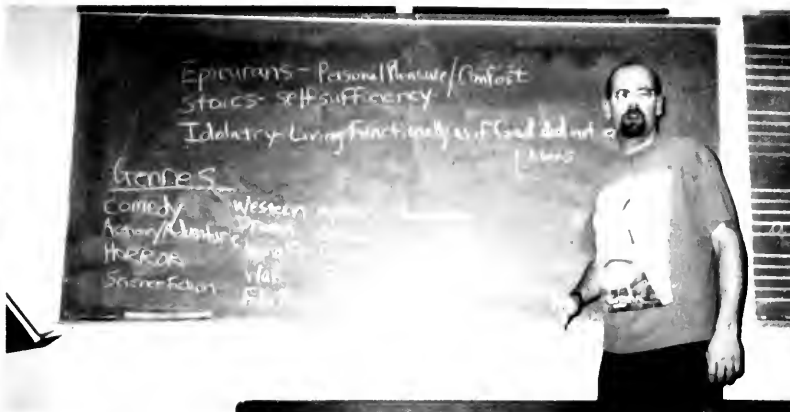 Epicurans - Personal Pleasure/Comfort
Stoics - self sufficiency
Idolatry - Living Functionally as if God did not
Genres
Comedy Western
Action/Adventure
HORROR
Science Fiction